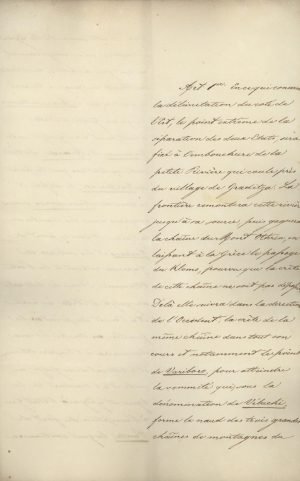 Art 1er. En ce qui concerne
la délimitation du coté de
l'Est, le point extrême de la
séparation des deux Etats, sera
fixé à l'embouchure de la
petite Rivière qui coule près
du village de Graditza. La
frontière remontera cette rivière
jusqu'à sa source, puis gagnera
la chaîne du Mont Othrix, en
laissant à la Grèce le passage
du Klomo, pourvu que la crête
de cette chaîne ne soit pas dépassée
Delà elle suivra dans la direction
de l'Occident, la crête de la
même chaîne dans tout son
cours et notamment le point
de Varibovo, pour atteindre
la sommité qui, sous la
dénomination de Véluchi,
forme le nœud des trois grandes
chaînes de montagnes du